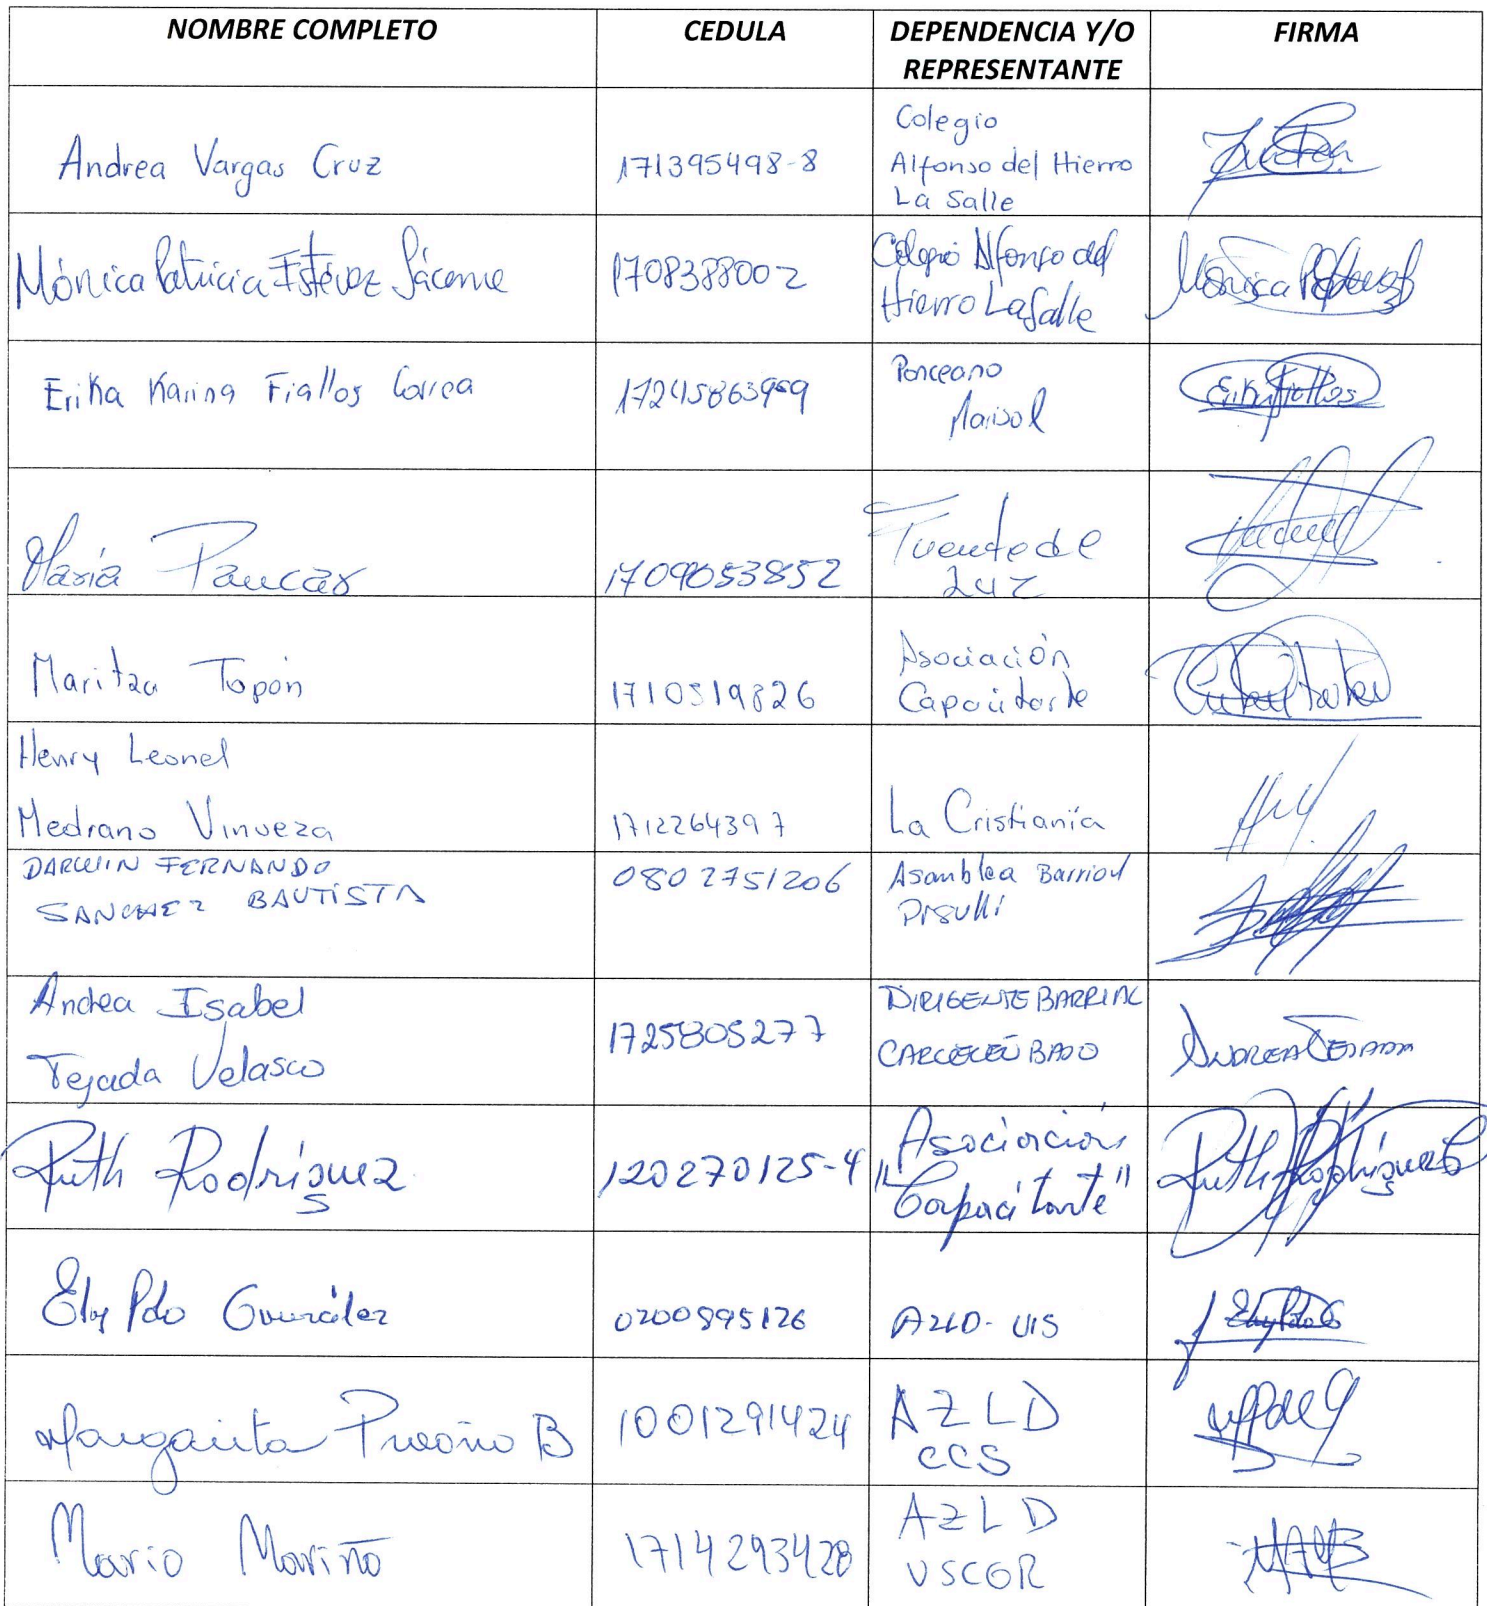 NOMBRE COMPLETO
CEDULA
DEPENDENCIA Y/O
REPRESENTANTE
FIRMA
Andrea Vargas Cruz
171395498-8
Colegio
Alfonso del Hierro
La Salle
Mónica Patricia Estévez Jácome
1708388002
Colegio Alfonso del
Hierro La Salle
Mónica
Erika Karina Fiallos Correa
Ponceano
Marisol
Erika Fiallos
María Paucar
1709053852
Fuente de
Luz
Maritza Topón
1710519826
Asociación
Capacitarte
Henry Leonel
Medrano Vinueza
1712264397
La Cristianía
DARWIN FERNANDO
SANCHEZ BAUTISTA
0802751206
Asamblea Barrial
Pisulli
Andrea Isabel
Tejada Velasco
1725805277
DIRIGENTE BARRIAL
CARCELÉN BAJO
ANDREA TEJADA
Ruth Rodríguez
120270125-4
Asociación
"Capacitarte"
Ruth Rodríguez
Ely Pdo González
0200895126
AZLD-UIS
Margarita B
1001291424
AZLD
CCS
Mario Mariño
1714293428
AZLD
USCGR